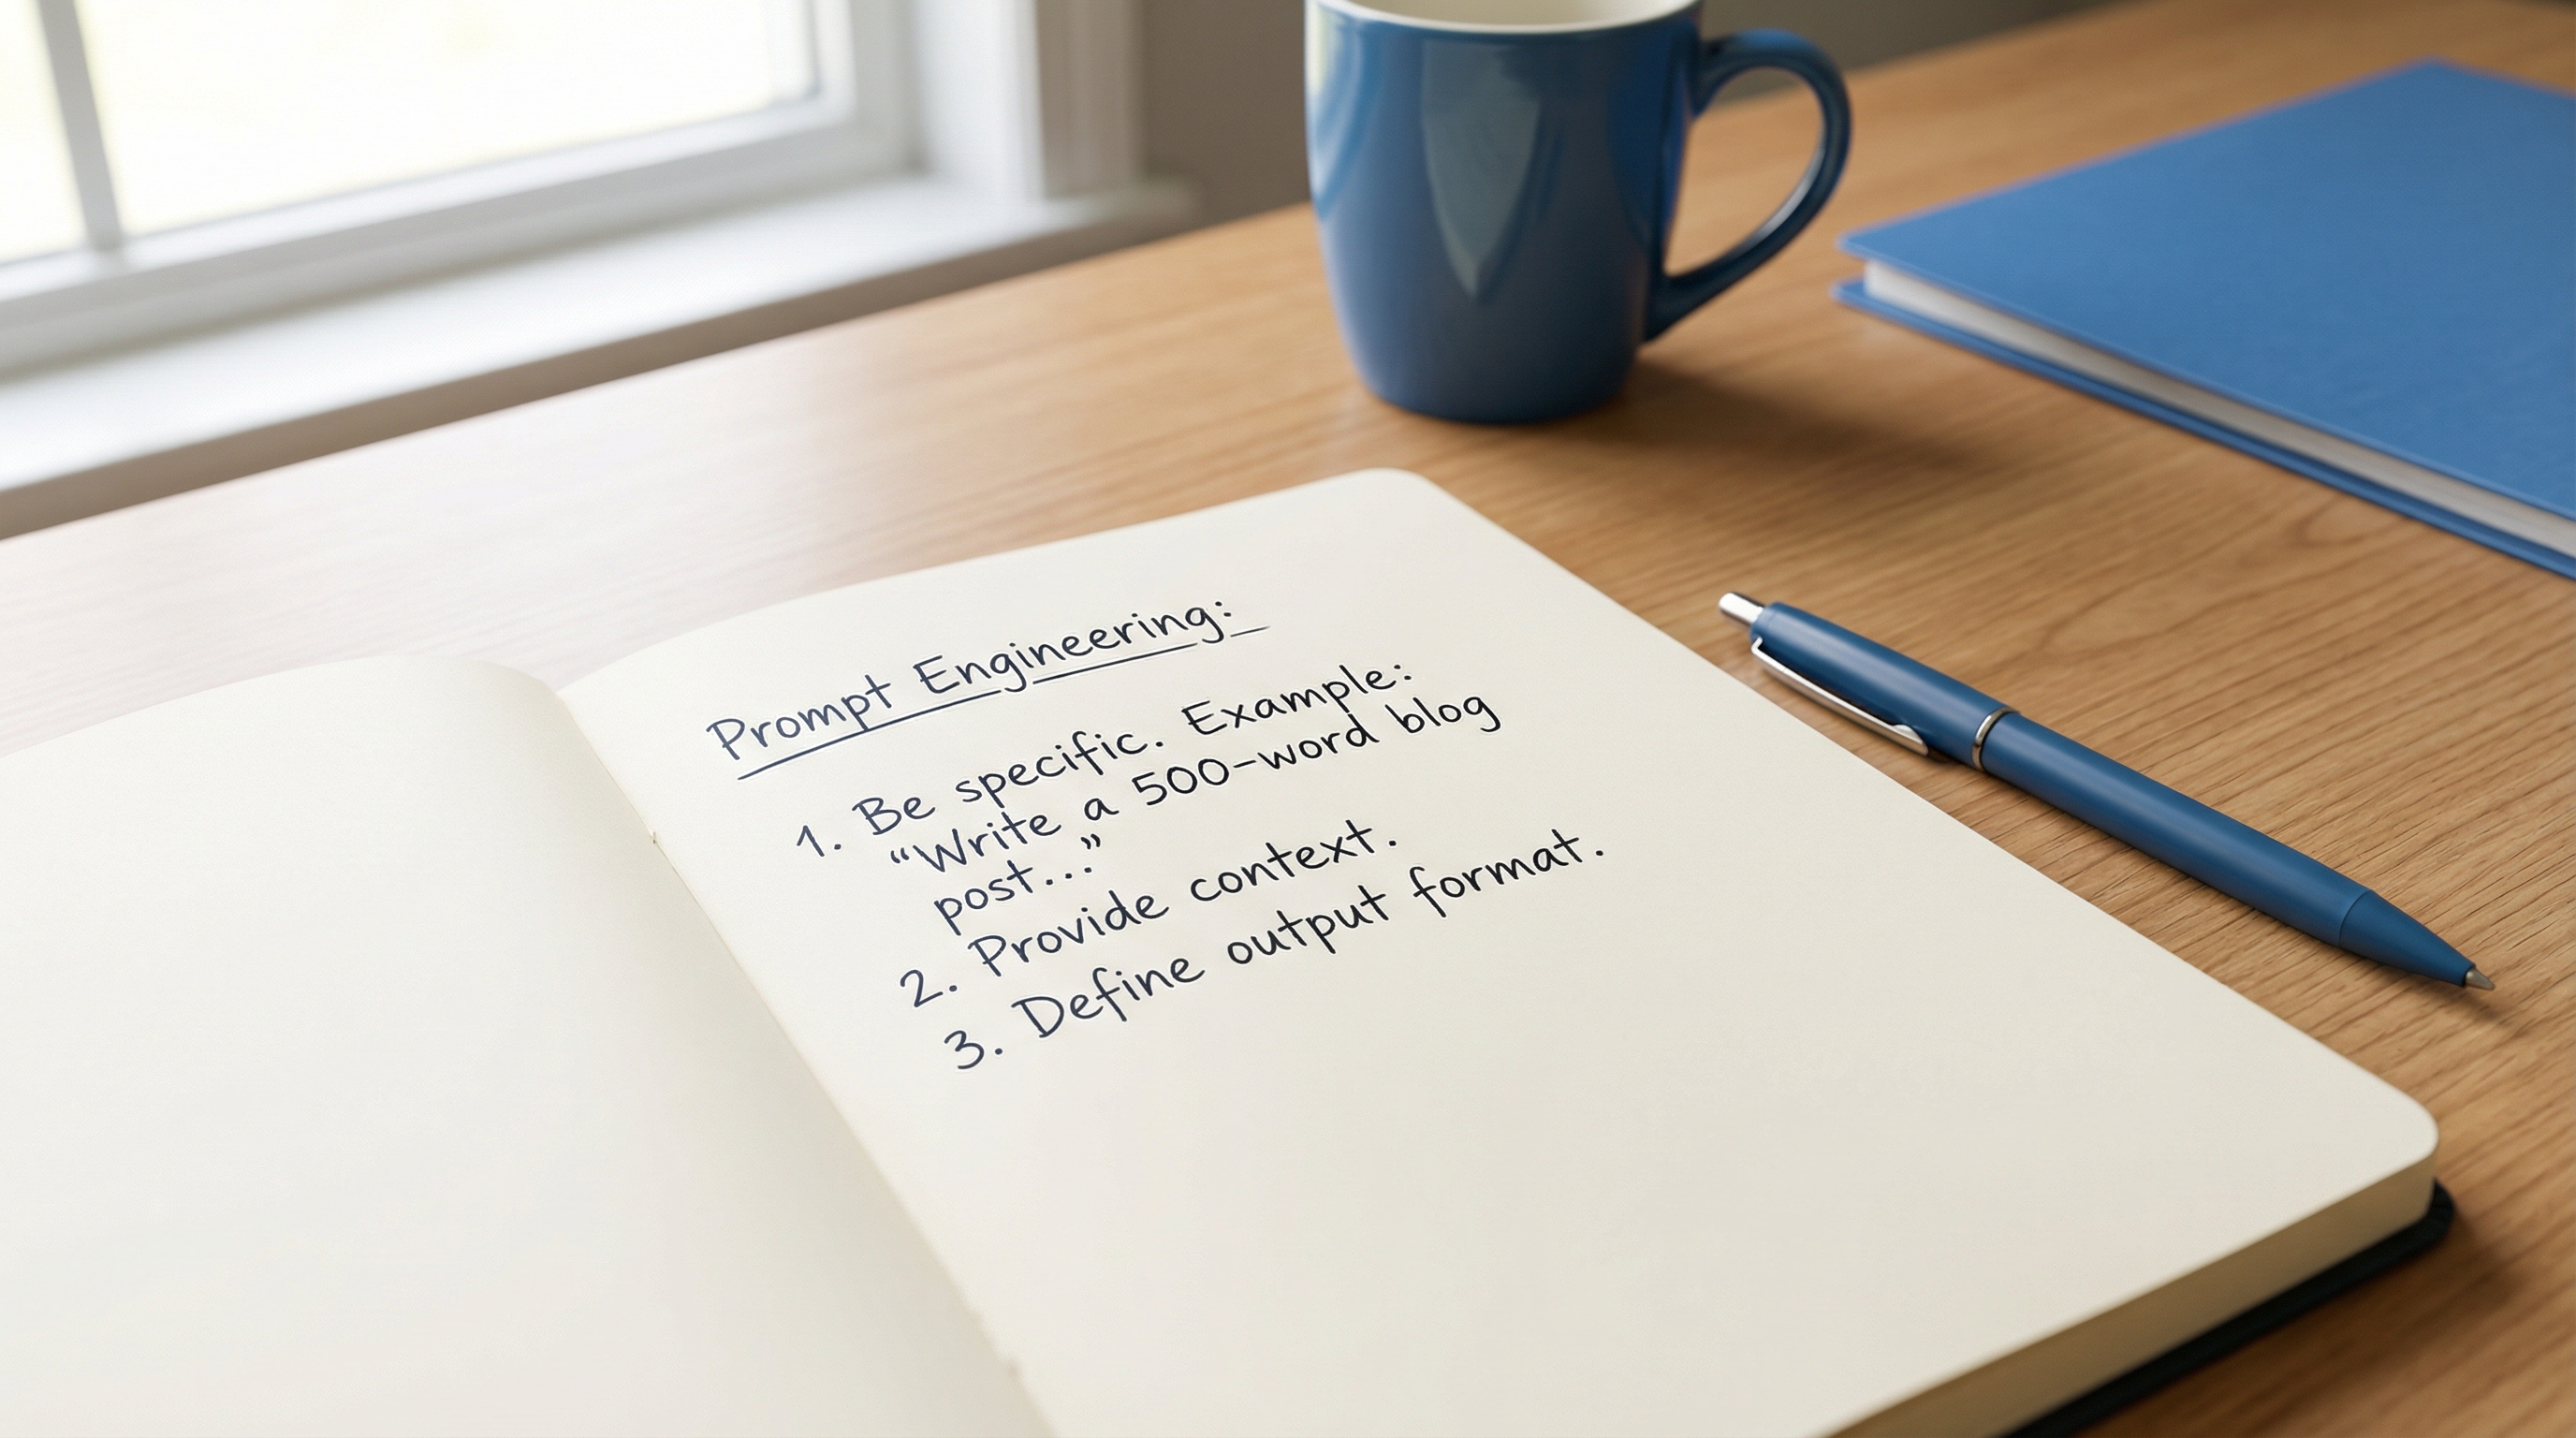 Prompt Engineering:
1. Be specific. Example:
“Write a 500-word blog
post...”
2. Provide context.
3. Define output format.